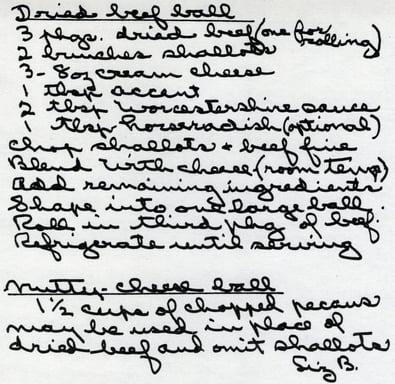 Dried beef ball
3 pkgs. dried beef (one for rolling)
2 bunches shallots
3 - 8oz cream cheese
1 tbsp accent
2 tbsp worcestershire sauce
1 tbsp horseradish (optional)
Chop shallots + beef fine
Blend with cheese (room temp)
Add remaining ingredients
Shape into one large ball.
Roll in third pkg of beef.
Refrigerate until serving
Nutty-cheese ball
1 1/2 cups of chopped pecans
may be used in place of
dried beef and omit shallots
Liz B.